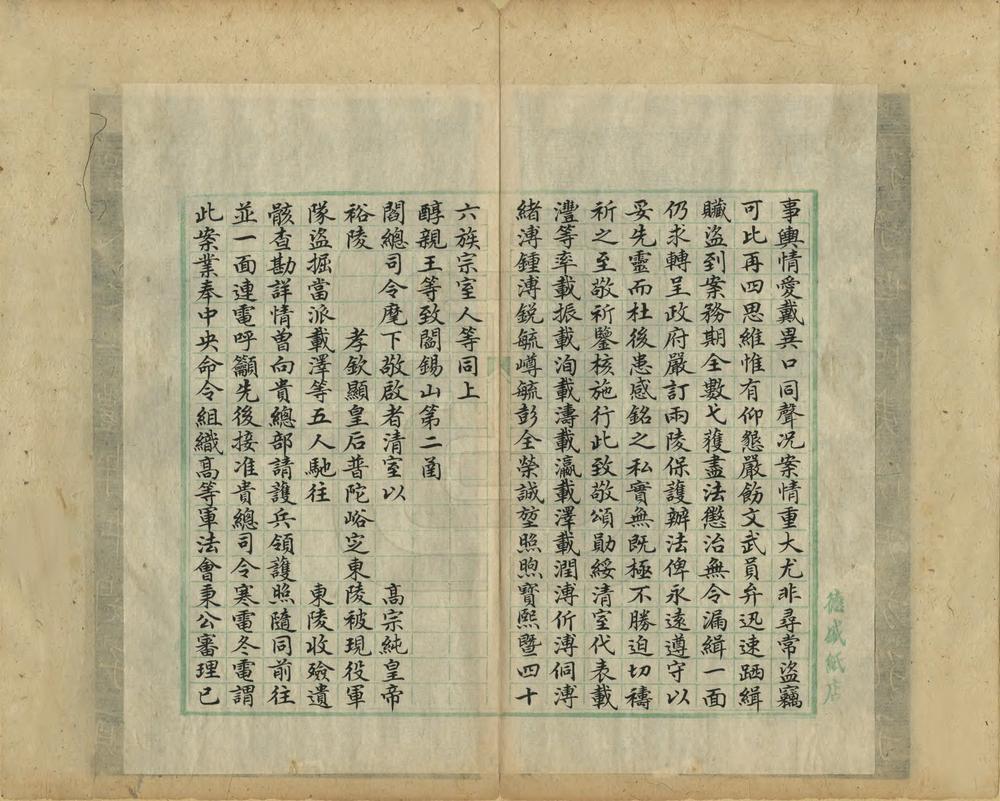 事輿情愛戴異口同聲況案情重大尤非尋常盜竊
可此再四思維惟有仰懇嚴飭文武員弁迅速跴緝
贓盜到案務期全數弋獲盡法懲治無令漏緝一面
仍求轉呈政府嚴訂兩陵保護辦法俾永遠遵守以
妥先靈而杜後患感銘之私實無既極不勝迫切禱
祈之至敬祈鑒核施行此致敬頌勛綏清室代表載
灃等率載振載洵載濤載瀛載澤載潤溥伒溥侗溥
緒溥鍾溥銳毓嶟毓彭全榮誠堃照煦寶熙暨四十
六族宗室人等同上
醇親王等致閻錫山第二函
閻總司令麾下敬啟者清室以 高宗純皇帝
裕陵 孝欽顯皇后普陀峪定東陵被現役軍
隊盜掘當派載澤等五人馳往 東陵收殮遺
骸查勘詳情曾向貴總部請護兵領護照隨同前往
並一面連電呼籲先後接准貴總司令寒電冬電謂
此案業奉中央命令組織高等軍法會秉公審理已
德盛紙店